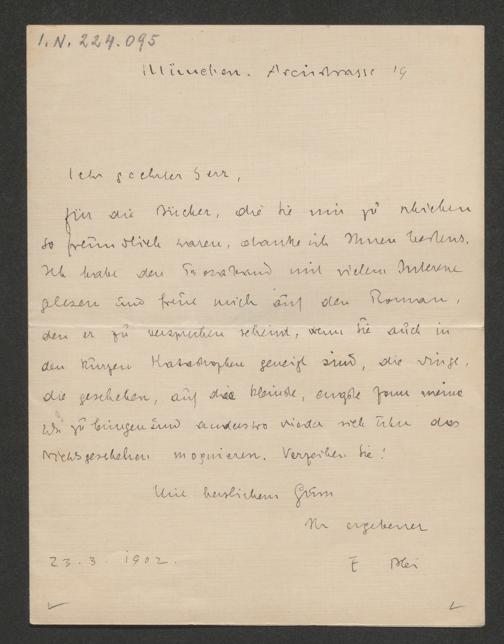 I.N. 224.095
München. Arcisstrasse 19
Sehr geehrter Herr,
für die Bücher, die Sie mir zu schicken
so freundlich waren, danke ich Ihnen bestens.
Ich habe den mit vielem Interesse
gelesen und freue mich auf den Roman,
den er zu versprechen scheint, wenn Sie auch in
den kurzen Katastrophen geneigt sind, die Dinge,
die geschehen, auf die kleinste, engste Form
zu bringen und anderswo wieder sich über das
Nichtsgeschehen moquieren. Verzeihen Sie!
Mit herzlichem Gruss
Ihr ergebener
F Blei
23.3.1902.